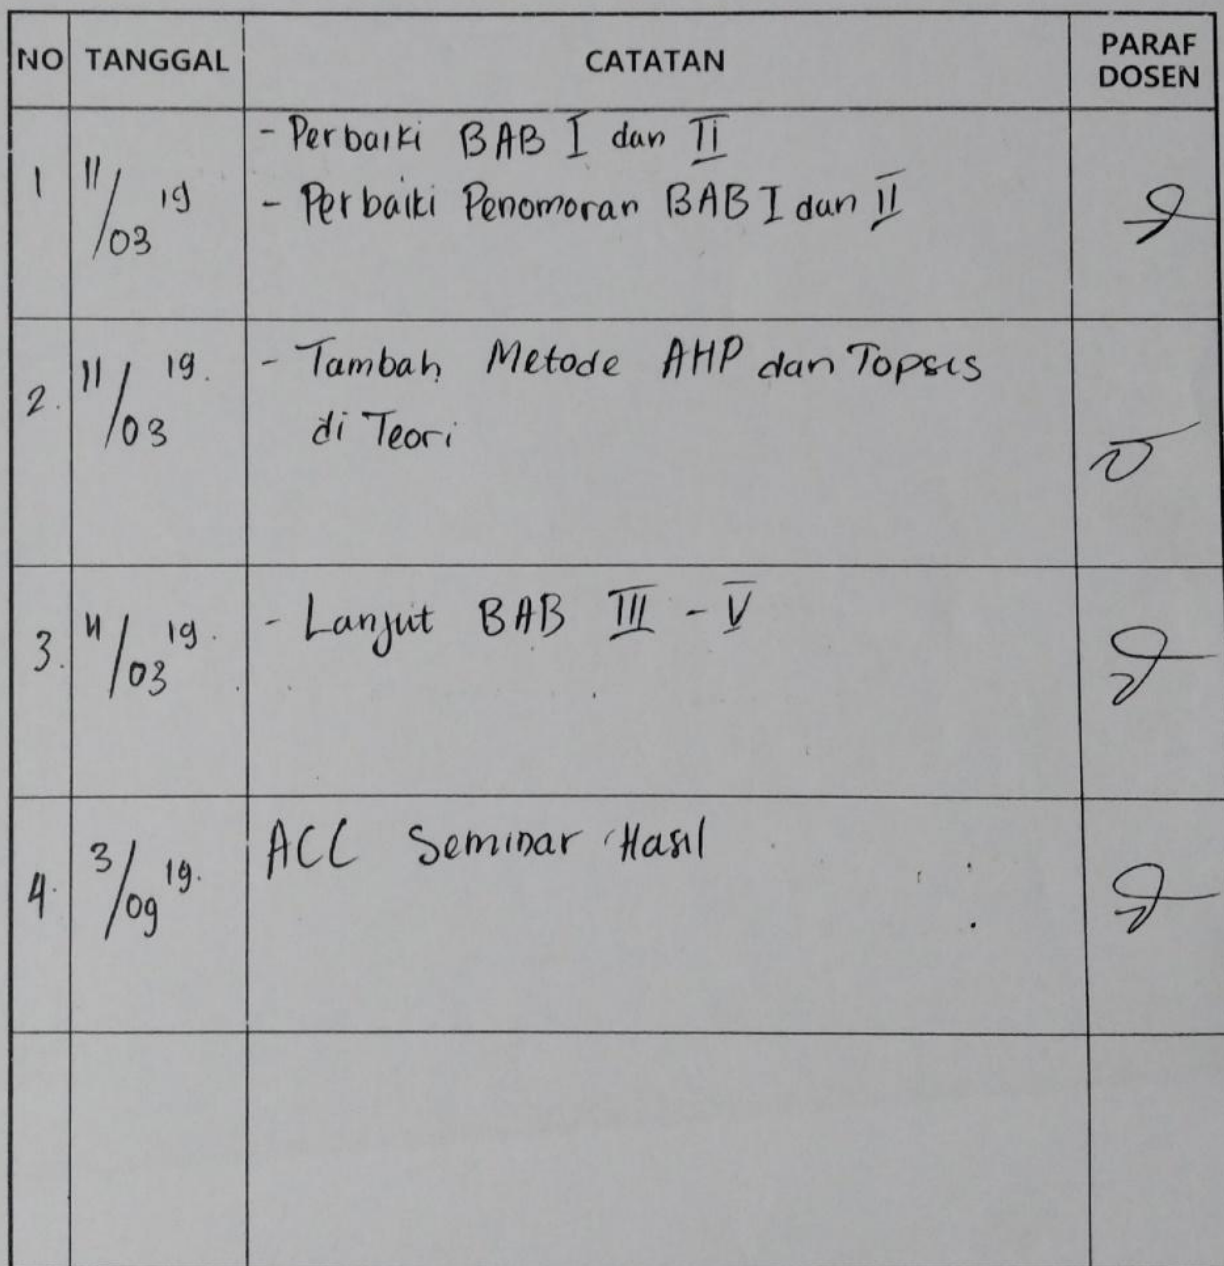 NO TANGGAL CATATAN PARAF DOSEN
1 11/03 19
- Perbaiki BAB I dan II
- Perbaiki Penomoran BAB I dan II
2. 11/03 19.
- Tambah Metode AHP dan Topsis
di Teori
3. 11/03 19.
- Lanjut BAB III - V
4. 3/09 19.
ACC Seminar Hasil